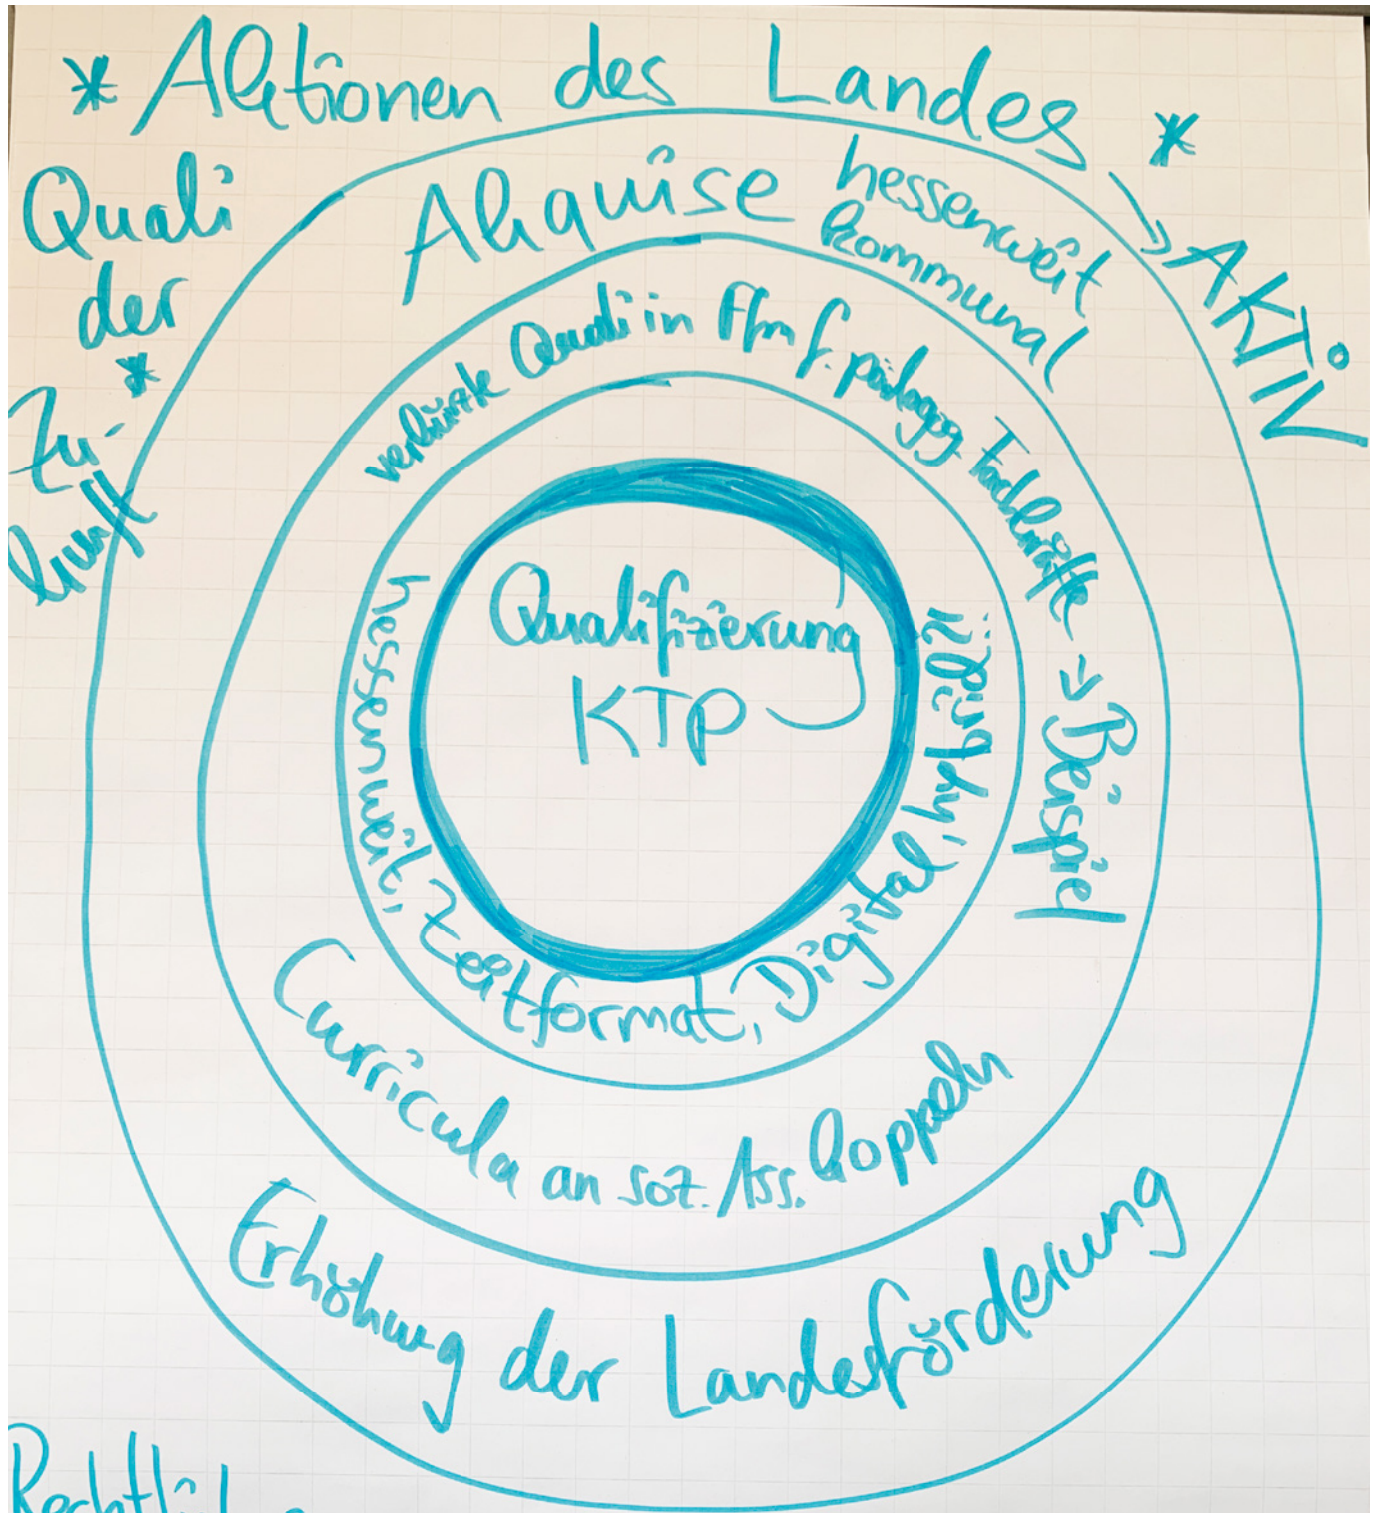 * Aktionen des Landes *
→ AKTiV
Quali
der
*
Zu-
kunft
Akquise hessenweit
kommunal
verkürzte Quali in Ffm f. pädagog. Fachkräfte → Beispiel
Qualifizierung
KTP
hessenweit, Zeitformat, Digital, hybrid
Curricula an soz. Ass. koppeln
Erhöhung der Landesförderung